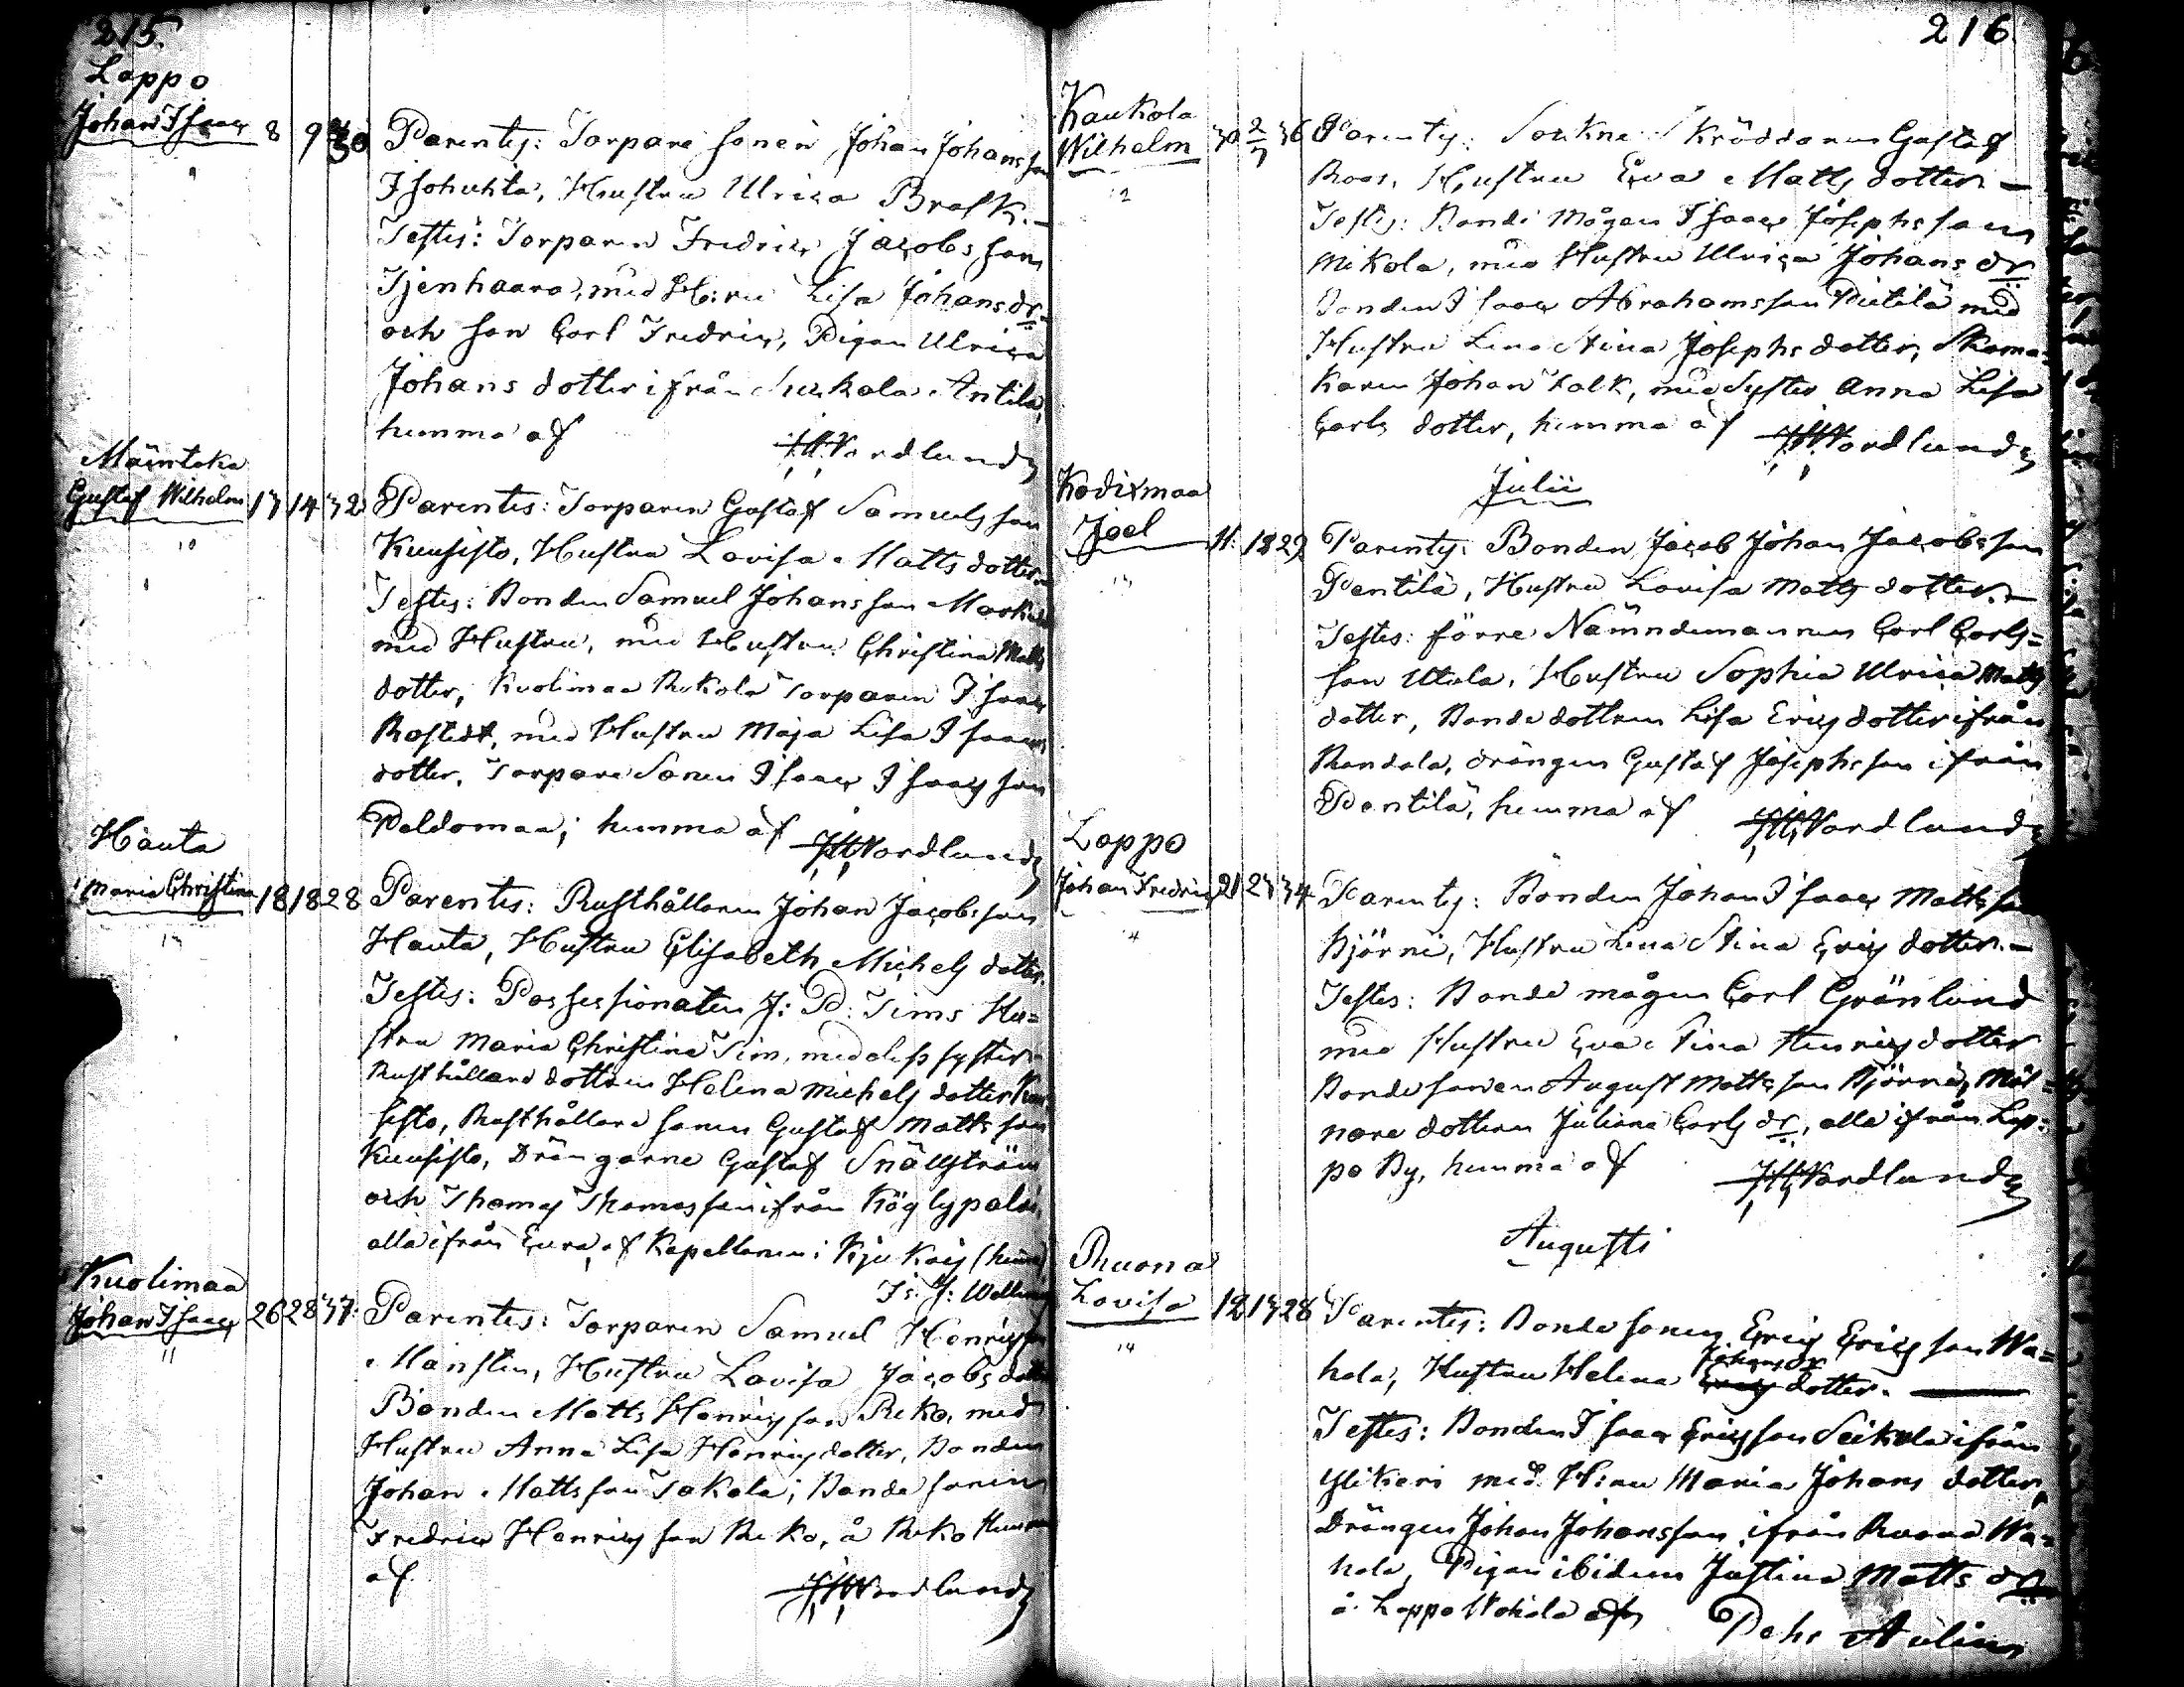 215.
Loppo
Johan Isaac 8 9 30
9
Parentes: Torpare sonen Johan Johansson
Isohuhta, Hustru Ulrica Brask.
Testes: Torparen Fredric Jacobsson
Tjenhaara, med H:ru Lisa Johansdr
och son Carl Fredric, Pigan Ulrica
Johans dotter ifrån Antila,
hemma af
Nordlund
Mäintaka
Gustaf Wilhelm 13 14 32
10
Parentes: Torparen Gustaf Samuelsson
Kuusisto, Hustru Lovisa Matts dotter
Testes: Bonden Samuel Johansson
med Hustru, med Hustru Christina Matts
dotter, Kuolimaa Torparen Isaac
Rostedt, med Hustru Maja Lisa Isaacs
dotter, Torpare Sonen Isaac Isaacsson
Peldomaa; hemma af
Nordlund
Hauta
Maria Christina 18 18 28
Parentes: Rusthållaren Johan Jacobsson
Hauta, Hustru Elisabeth Michels dotter.
Testes: Possessionaten J: P: Tims Hu=
stru Maria Christina Tim, med dess syster
Rusthållare dottren Helena Michels dotter Kuu
sisto, Rusthållare sonen Gustaf Mattsson
Kuusisto, Drängarne Gustaf Snällström
och Thomas Thomasson ifrån
alla ifrån Eura, af Kapellanen i
Kuolimaa
Johan Isaac 26 28 37
11
Parentes: Torparen Samuel Henricsson
Mansten, Hustru Lovisa Jacobs dotter
Bonden Matts Henricsson Reko, med
Hustru Anna Lisa Henricsdotter, Bonden
Johan Mattsson Takala; Bonde sonen
Fredric Henricsson Reko, å Reko hemma
af
Nordlund
216
Kaukola
Wilhelm 30 2/7 36
12
Parentes: Sockne Skräddaren Gustaf
Roos, Hustru Eva Matts dotter
Testes: Bonde Mågen Isaac Josephsson
Mikola, med Hustru Ulrica Johans dr
Bonden Isaac Abrahamsson Pietilä med
Hustru Lena Stina Josephs dotter, Skoma=
karen Johan Falk, med Syster Anna Lisa
Carls dotter, hemma af
Nordlund
Julii
Kodixmaa
Joel 11. 18 29
13
Parentes: Bonden Jacob Johan Jacobsson
Pentilä, Hustru Lovisa Matts dotter.
Testes: förre Nämndemannen Carl Carls=
son Utula, Hustru Sophia Ulrica Matts
dotter, Bonde dottren Lisa Erics dotter ifrån
Randala, drängen Gustaf Josephsson ifrån
Pentilä, hemma af
Nordlund
Loppo
Johan Fredric 21 23 34
14
Parentes: Bonden Johan Isaac Mattsson
Björni, Hustru Lena Stina Erics dotter.
Testes: Bonde mågen Carl Grönlund
med Hustru Eva Stina Henrics dotter
Bonde sonen August Mattsson Björni, Möl=
nare dottren Juliana Carls dr, alla ifrån Lop=
po By, hemma af
Nordlund
Augusti
Ruona
Lovisa 12 13 28
14
Parentes: Bonde sonen Eric Ericsson Wa=
hala, Hustru Helena Johans dr dotter.
Testes: Bonden Isaac Ericsson Seikola ifrån
Ylikeri med H:ru Maria Johans dotter,
Drängen Johan Johansson, ifrån Ruona Wa=
hala, Pigan ibidem Justina Matts dr
å Loppo Wahala af
Pehr Aulin